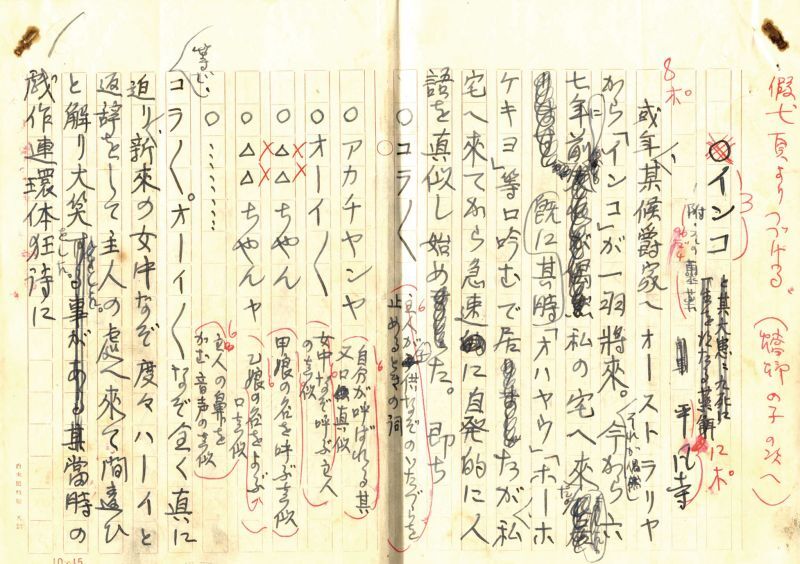 假七頁よりつづける。(蟷螂の子の次へ)
8ポ。
インコ
と其大患に九死に
一生を
薬
にポ。
平瓦寺
或年某候爵家へオーストラリヤ
から「インコ」が一羽將来。今から六
それが偶然
七年前に私の宅へ来
既に其時「オハヤウ」「ホーホ
ケキヨ」等口吟むで居たが私
宅へ来てから急速に自発的に人
語を真似し始めた。即ち
○コラ〳〵
主人が子供なぞのいたづらを
止めるときの詞
○アカチヤンヤ
自分が呼ばれる其
又口真似
○オーイ〳〵
女中なぞ呼ぶ主人
の真似
○△△ちやん
甲娘の名を呼ぶ真似
○△△ちやんャ
乙娘の名をよぶ
口真似
○……
主人の鼻を
かむ音声の真似
等じ
コラ〳〵。オーイ〳〵なぞ全く真に
迫り新来の女中なぞ度々ハーイと
返辞をして主人の處へ来て間違ひ
と解り大笑をした。其當時の
戯作連環体狂詩に
10-15